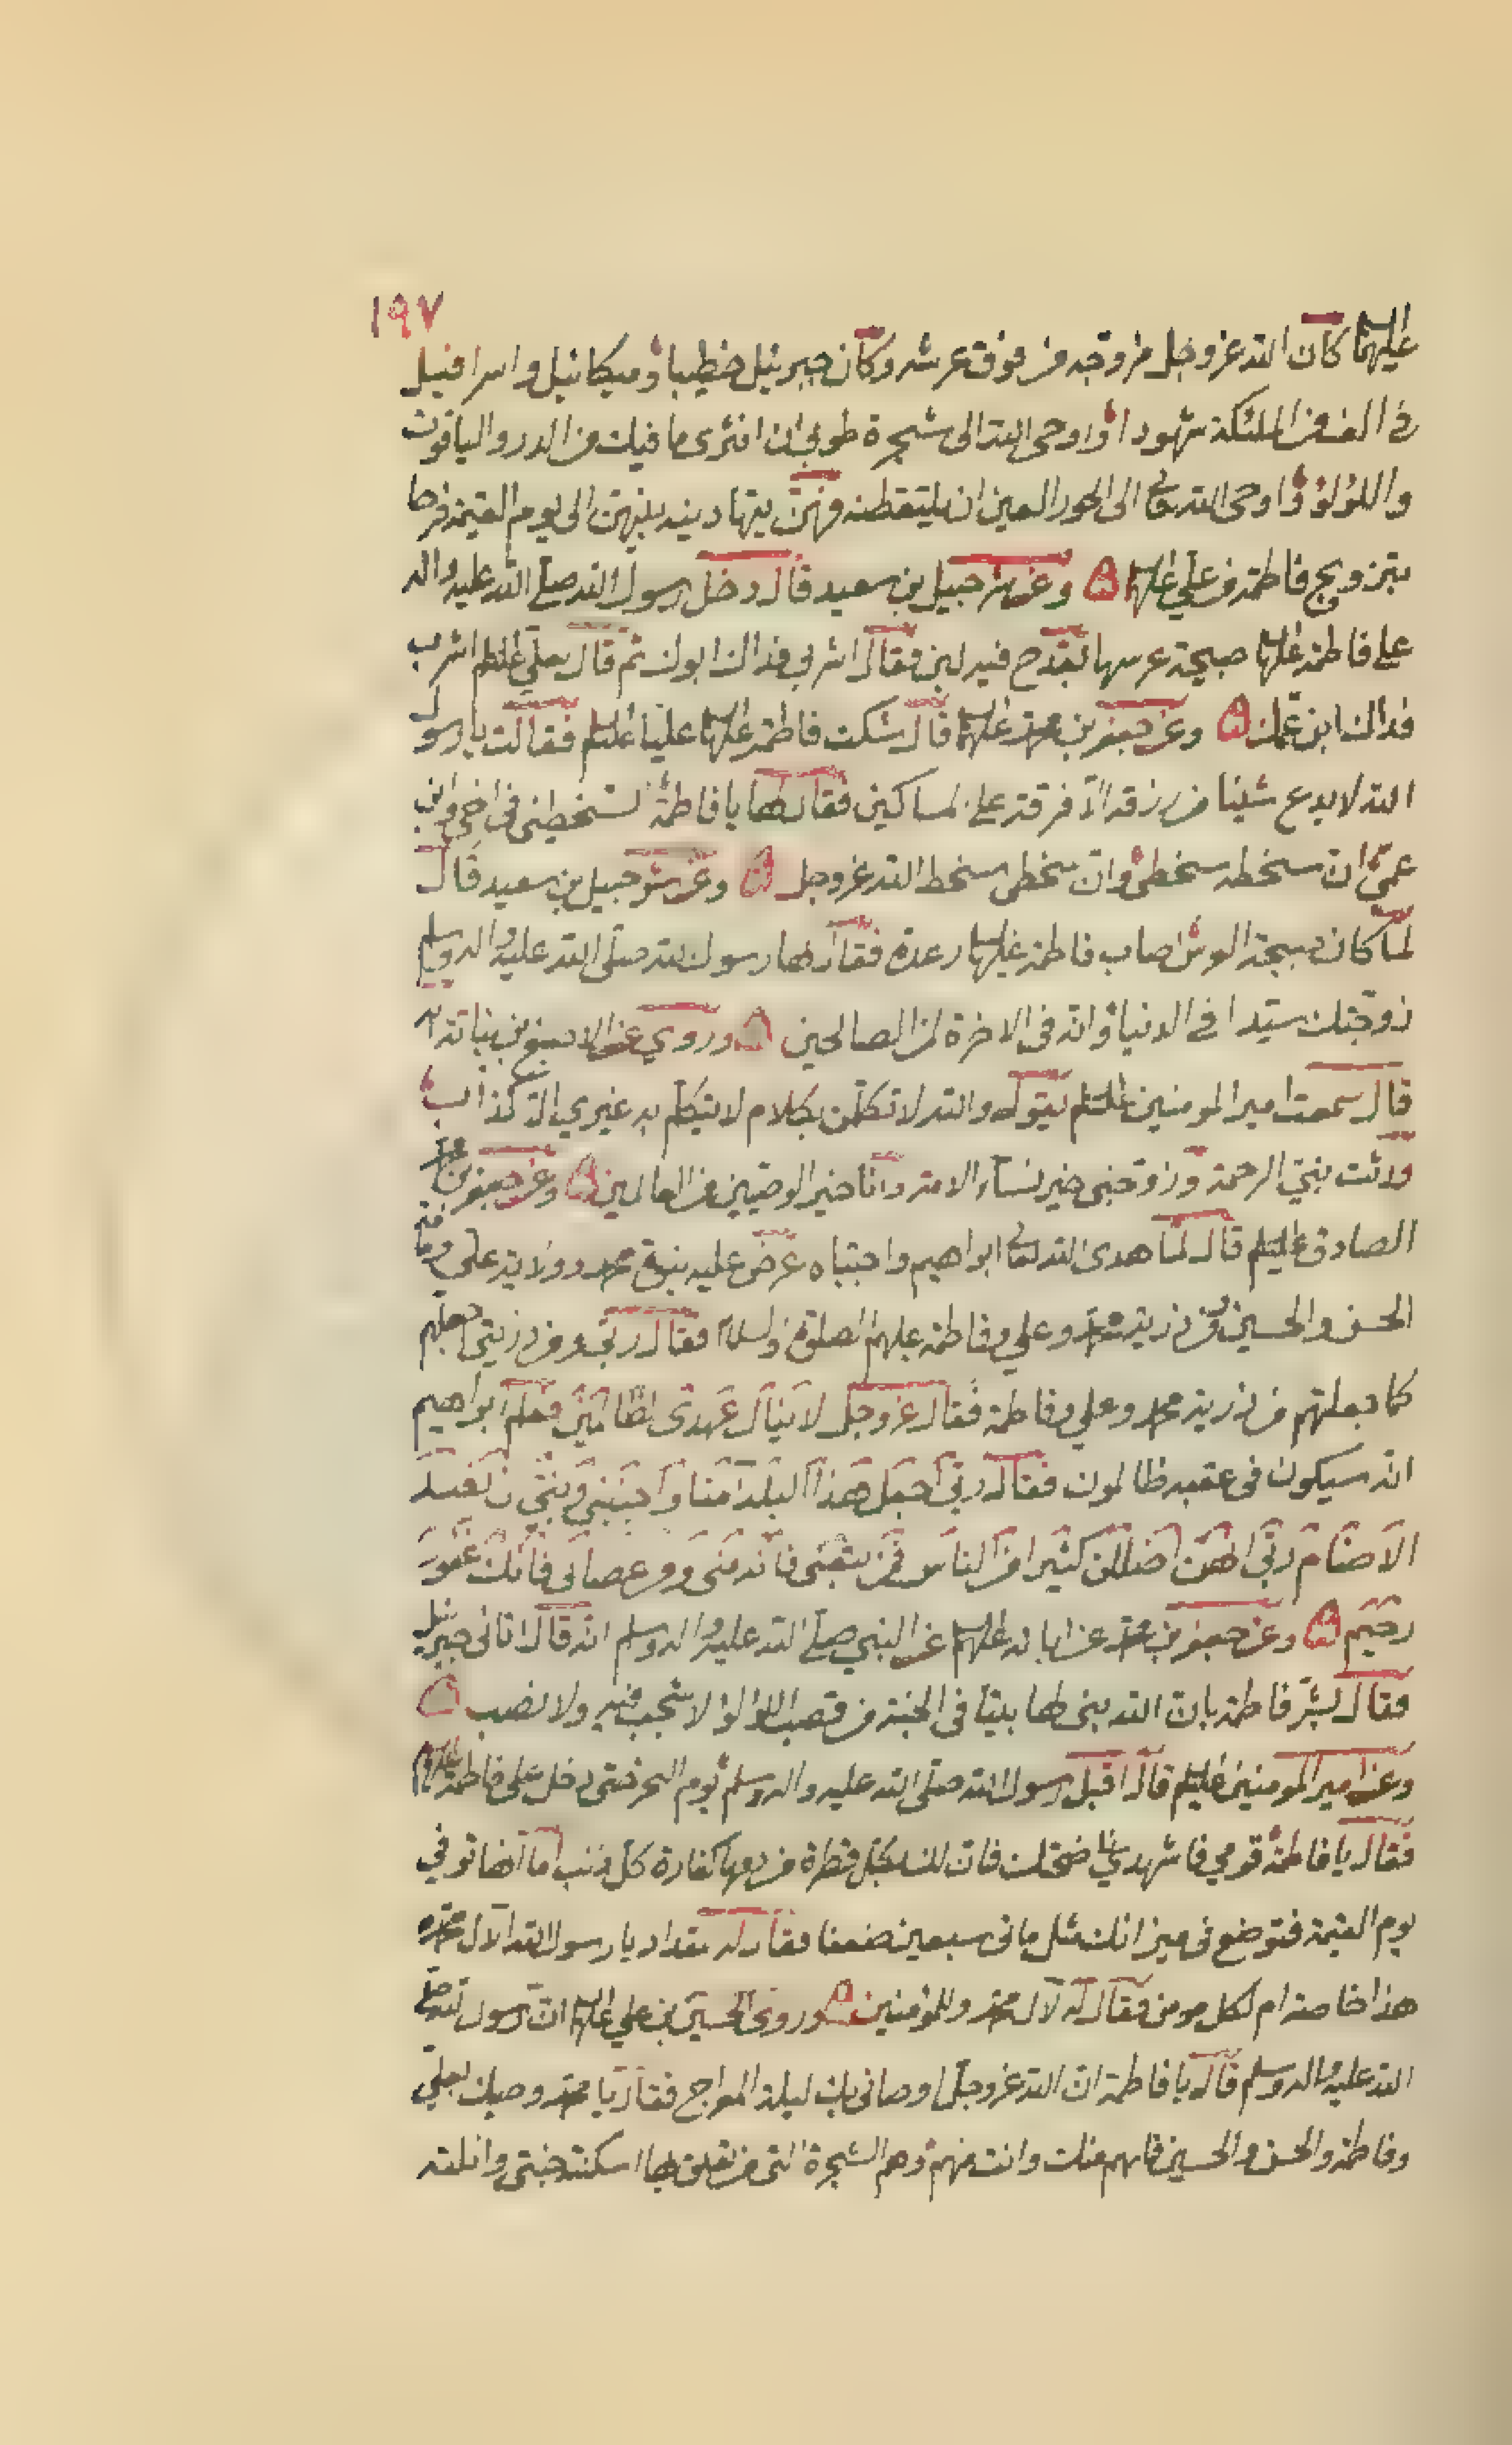 ١٩٧
عليهما السلم كان الله عز وجل مزوجه من فوق عرشه وكان جبرئيل خطيبا وميكائيل واسرافيل
في الف من الملئكة شهودا واوحى الله الى شجرة طوبى ان انثرى ما فيك من الدر والياقوت
واللؤلؤ واوحى الله تعالى الى الحور العين ان يلتقطنه فهن يتهادينه بينهن الى يوم القيمة فرحا
بتزويج فاطمة من علي عليهما السلم وعن شرحبيل بن سعيد قال دخل رسول الله صلى الله عليه واله
على فاطمة عليها السلم صبيحة عرسها بقدح فيه لبن فقال اشربي فداك ابوك ثم قال لعلي عليه السلم اشرب
فداك ابن عمك وعن جعفر بن محمد عليهما السلم قال شكت فاطمة عليها السلم عليا عليه السلم فقالت يا رسول
الله لا يدع شيئا من رزقه الا فرقه على المساكين فقال لها يا فاطمة اتسخطينى فى اخي وابن
عمي ان سخطه سخطى وان سخطى سخط الله عز وجل وعن شرحبيل بن سعيد قال
لما كان صبيحة العرس اصاب فاطمة عليها السلم رعدة فقال لها رسول الله صلى الله عليه واله وسلم
زوجتك سيدا في الدنيا وانه فى الاخرة لمن الصالحين وروي عن الاصبغ بن نباتة انه
قال سمعت امير المومنين عليه السلم يقول والله لاتكلمن بكلام لا يتكلم به غيري الا كذاب
ورثت نبي الرحمة وزوجتى خير نساء الامة وانا خير الوصيين من العالمين وعن جعفر بن محمد
الصادق عليه السلم قال لما هدى الله تعالى ابراهيم واجتباه عرض عليه نبوة محمد وولاية علي وفاطمة
الحسن والحسين من ذرية محمد وعلي وفاطمة عليهم الصلوة والسلام فقال رب ومن ذريتى اجعلهم
كما جعلتهم من ذرية محمد وعلي وفاطمة فقال عز وجل لا ينال عهدى الظالمين فعلم ابراهيم
انه سيكون فى عقبه ظالمون فقال رب اجعل هذا البلد آمنا واجنبني وبني ان نعبد
الاصنام رب انهن اضللن كثيرا من الناس فمن تبعنى فانه منى ومن عصانى فانك غفور
رحيم وعن جعفر بن محمد عن ابائه عليهم السلم عن النبي صلى الله عليه واله وسلم انه قال اتانى جبرئيل
فقال بشر فاطمة بان الله بنى لها بيتا فى الجنة من قصب اللؤلؤ لا صخب فيه ولا نصب
وعن امير المومنين عليه السلم قال اقبل رسول الله صلى الله عليه واله وسلم يوم النحر حتى دخل على فاطمة عليها السلم
فقال يا فاطمة قومي فاشهدي اضحيتك فان لك بكل قطرة من دمها كفارة كل ذنب اما انها توتي
يوم القيمة فتوضع فى ميزانك مثل مافى سبعين ضعفا فقال له مقداد يا رسول الله الآل محمد
هذا خاصة ام لكل مومن فقال له لآل محمد وللمؤمنين وروى الحسين بن علي عليهما السلم ان رسول الله صلى
الله عليه واله وسلم قال يا فاطمة ان الله عز وجل اوصانى بك ليلة المعراج فقال يا محمد وصيك بعلي
وفاطمة والحسن والحسين فانهم منك وانت منهم وهم الشجرة التى من تعلق بها اسكنته جنتى وانلته